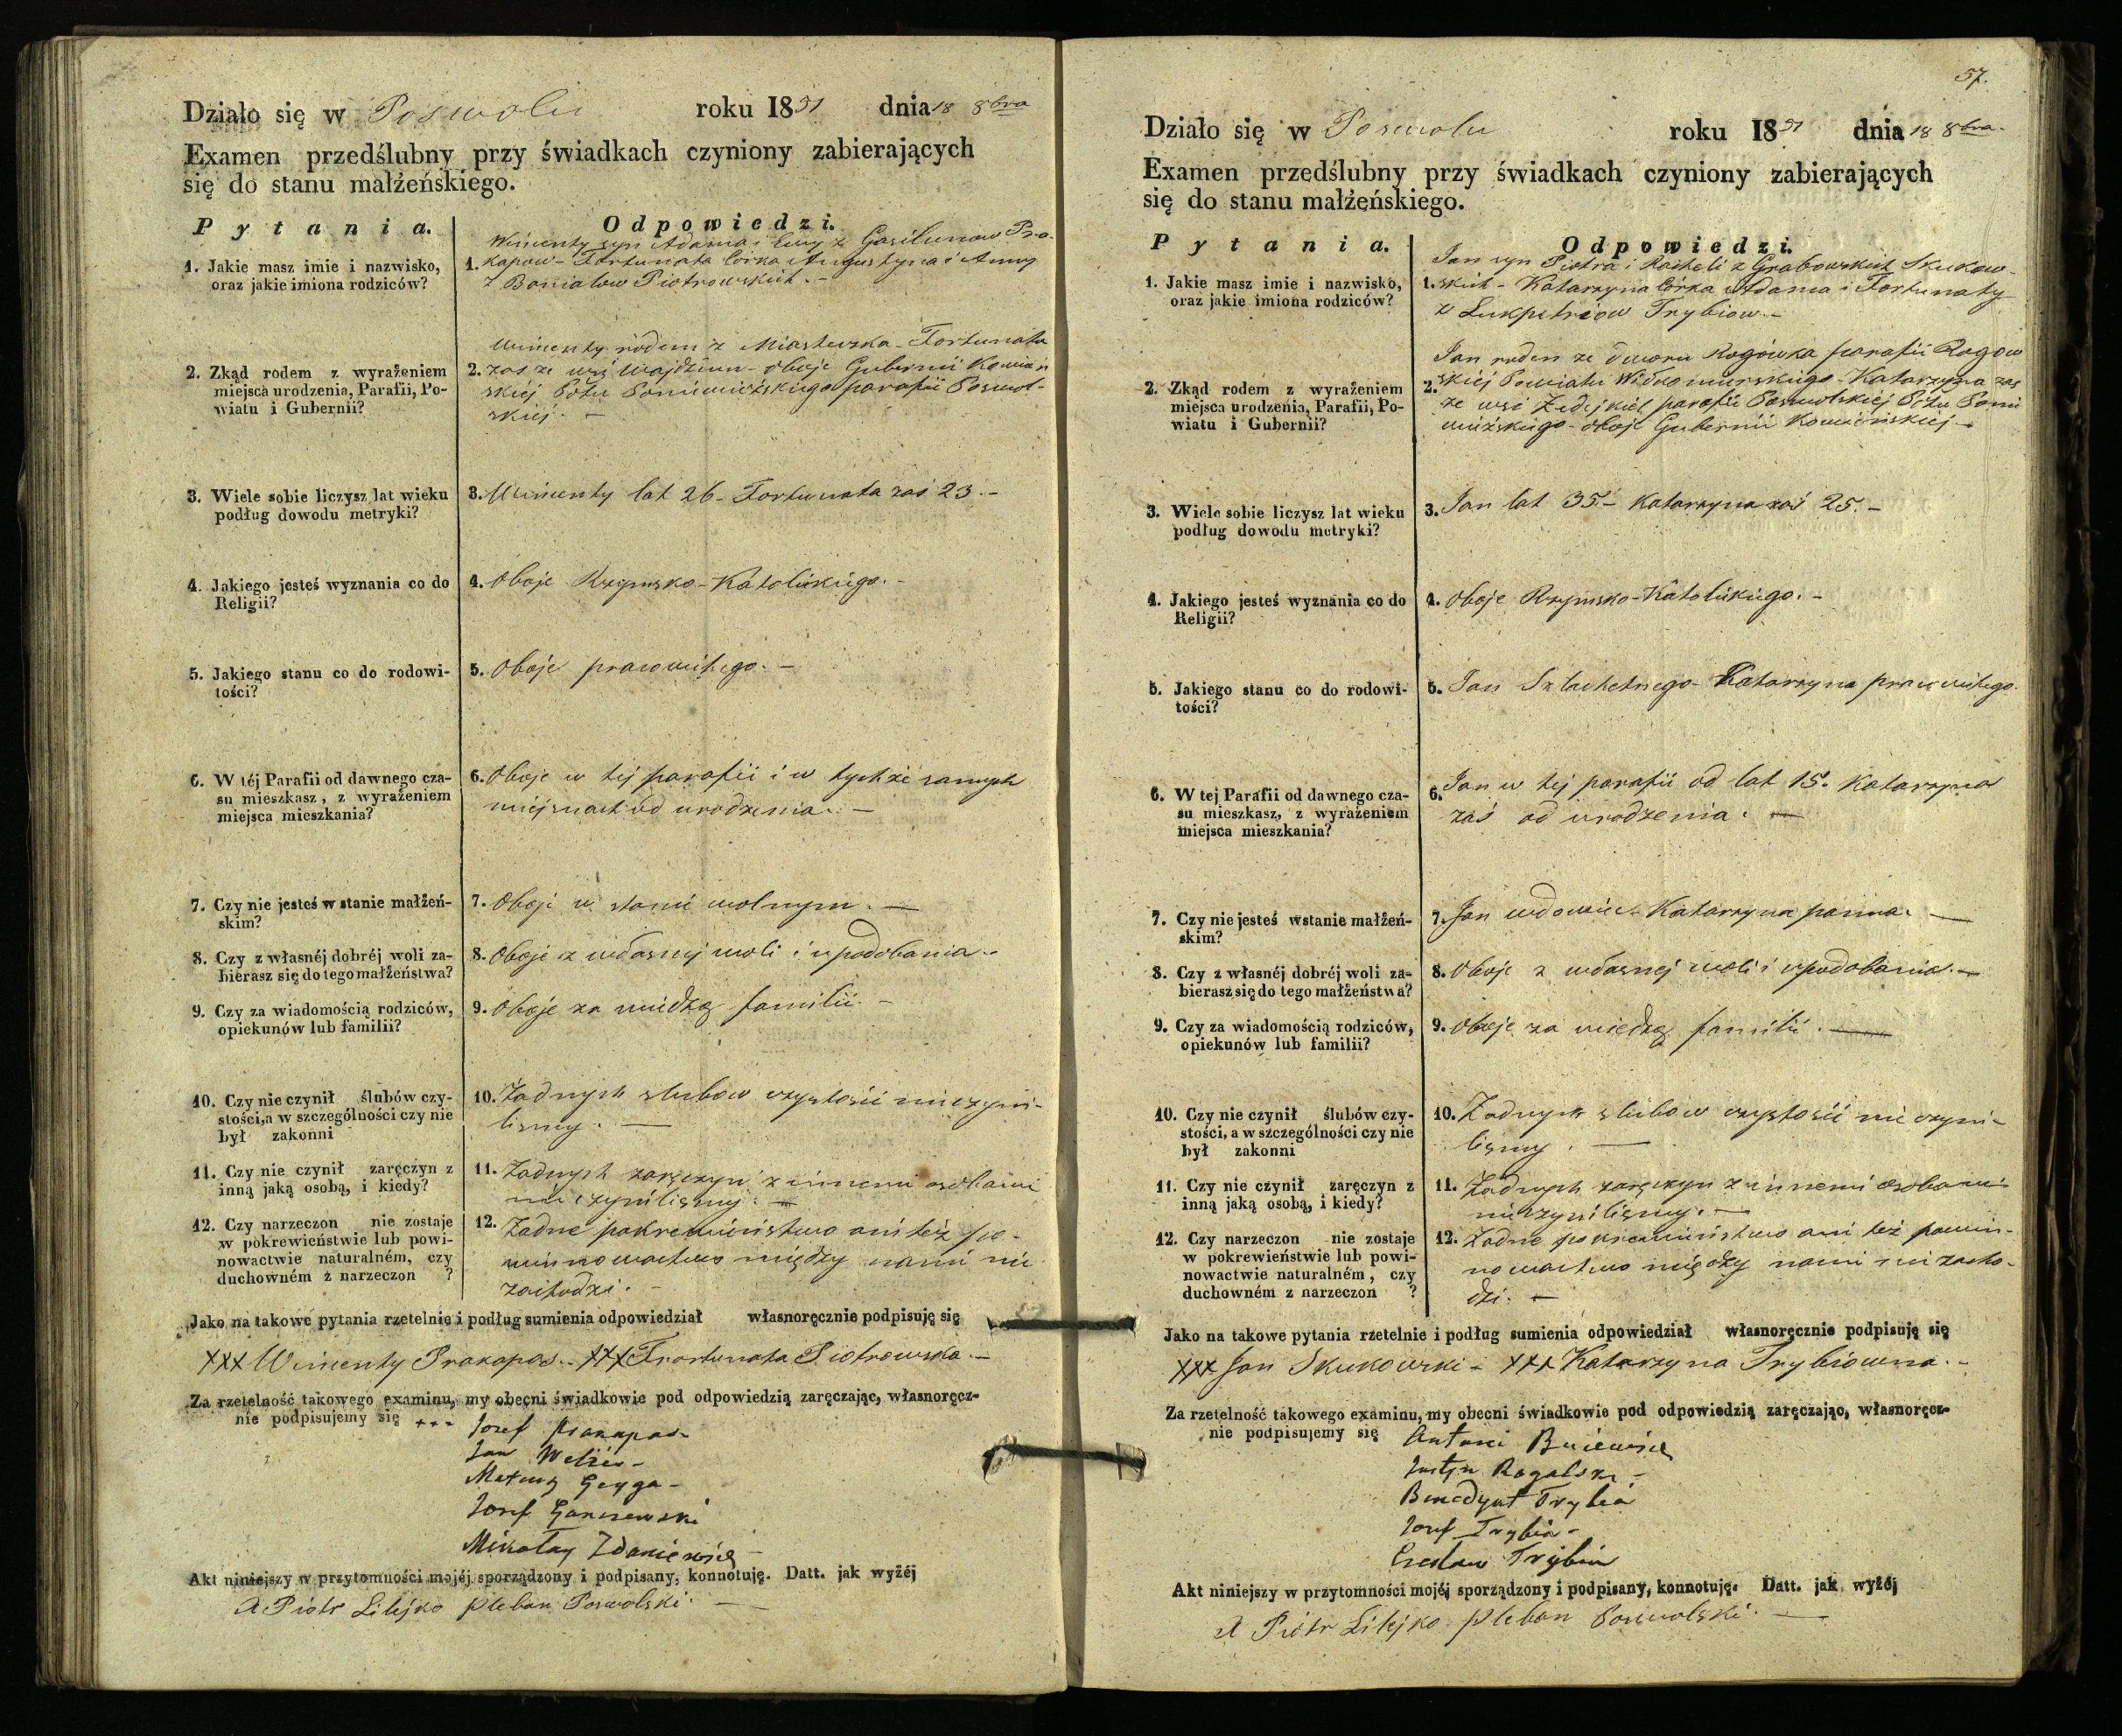 Działo się w Poswolu roku 1851 dnia 18 8bra
Examen przedślubny przy świadkach czyniony zabierających
się do stanu małżeńskiego.
Pytania.
Odpowiedzi.
1. Jakie masz imie i nazwisko,
oraz jakie imiona rodziców?
Wincenty syn Adama i Ewy z Gasilunow Pra-
1. kapow - Fortunata Córka Augustyna i Anny
z Bonialow Piotrowskich. -
2. Zkąd rodem z wyrażeniem
miejsca urodzenia, Parafii, Po-
wiatu i Gubernii?
Wincenty rodem z Miasteczka - Fortunata
2. zaś ze wsi Wajdziun - oboje Gubernii Kowień
skiéj Pôtu Poniewieżskiego parafii Poswol-
skiéj. -
3. Wiele sobie liczysz lat wieku
podług dowodu metryki?
3. Wincenty lat 26 - Fortunata zaś 23. -
4. Jakiego jesteś wyznania co do
Religii?
4. Oboje Rzymsko-Katolickiego. -
5. Jakiego stanu co do rodowi-
tości?
5. Oboje pracowitego. -
6. W téj Parafii od dawnego cza-
su mieszkasz, z wyrażeniem
miejsca mieszkania?
6. Oboje w tej parafii i w tychże samych
miejscach od urodzenia. -
7. Czy nie jesteś w stanie małżeń-
skim?
7. Oboje w stanie wolnym. -
8. Czy z własnéj dobréj woli za-
bierasz się do tego małżeństwa?
8. Oboje z własnej woli i upodobania. -
9. Czy za wiadomością rodziców,
opiekunów lub familii?
9. Oboje za wiedzą familii. -
10. Czy nie czynił ślubów czy-
stości, a w szczególności czy nie
był zakonni
10. Żadnych slubow czystości nie czyni-
lismy. -
11. Czy nie czynił zaręczyn z
inną jaką osobą, i kiedy?
11. Żadnych zaręczyn z innemi osobami
nie czynilismy. -
12. Czy narzeczon nie zostaje
w pokrewieństwie lub powi-
nowactwie naturalném, czy
duchowném z narzeczon ?
12. Żadne pokrewieństwo ani też po-
winnowactwo między nami nie
zachodzi. -
Jako na takowe pytania rzetelnie i podług sumienia odpowiedział własnoręcznie podpisuję się
XXX Wincenty Prakapas. - XXX Frortunata Piotrowska. -
Za rzetelność takowego examinu, my obecni świadkowie pod odpowiedzią zaręczając, własnoręcz-
nie podpisujemy się +++ Jozef Prakapas -
Jan
Mateusz Geyga -
Jozef
Mikołay Zdaniewicz -
Akt niniejszy w przytomności mojéj sporządzony i podpisany, konnotuję. Datt. jak wyżéj
X Piotr Lilejko Pleban Poswolski. -
57.
Działo się w Poswolu roku 1851 dnia 18 8bra.
Examen przedślubny przy świadkach czyniony zabierających
się do stanu małżeńskiego.
Pytania.
Odpowiedzi.
1. Jakie masz imie i nazwisko,
oraz jakie imiona rodziców?
Jan syn Piotra i Racheli z Grabowskich Skukow-
1. skich - Katarzyna Córka Adama i Fortunaty
z Trybiow. -
2. Zkąd rodem z wyrażeniem
miejsca urodzenia, Parafii, Po-
wiatu i Gubernii?
Jan rodem ze dworu Rogówka parafii Rogow
2. skiéj Powiatu Wiłkomierskiego - Katarzyna zaś
ze wsi parafii Poswolskiéj Pôtu Ponie
wieżskiego - oboje Gubernii Kowieńskiéj -
3. Wiele sobie liczysz lat wieku
podług dowodu metryki?
3. Jan lat 35. - Katarzyna zaś 25. -
4. Jakiego jesteś wyznania co do
Religii?
4. Oboje Rzymsko-Katolickiego. -
5. Jakiego stanu co do rodowi-
tości?
5. Jan Szlachetnego - Katarzyna pracowitego.
6. W tej Parafii od dawnego cza-
su mieszkasz, z wyrażeniem
miejsca mieszkania?
6. Jan w tej parafii od lat 15. Katarzyna
zaś od urodzenia. -
7. Czy nie jesteś wstanie małżeń-
skim?
7. Jan wdowiec - Katarzyna panna. -
8. Czy z własnéj dobréj woli za-
bierasz się do tego małżeństwa?
8. Oboje z własnej woli i upodobania. -
9. Czy za wiadomością rodziców,
opiekunów lub familii?
9. Oboje za wiedzą familii. -
10. Czy nie czynił ślubów czy-
stości, a w szczególności czy nie
był zakonni
10. Żadnych slubow czystości nie czyni-
lismy. -
11. Czy nie czynił zaręczyn z
inną jaką osobą, i kiedy?
11. Żadnych zaręczyn z innemi osobami
nie czynilismy. -
12. Czy narzeczon nie zostaje
w pokrewieństwie lub powi-
nowactwie naturalném, czy
duchowném z narzeczon ?
12. Żadne pokrewieństwo ani też powin-
nowactwo między nami nie zacho-
dzi. -
Jako na takowe pytania rzetelnie i podług sumienia odpowiedział własnoręcznie podpisuję się
XXX Jan Skukowski - XXX Katarzyna Trybiowna. -
Za rzetelność takowego examinu, my obecni świadkowie pod odpowiedzią zaręczając, własnoręcz-
nie podpisujemy się Antoni
Justyn Rogalski -
Benedykt Trybia
Jozef Trybia -
Czesław Trybia
Akt niniejszy w przytomności mojéj sporządzony i podpisany, konnotuję. Datt. jak wyżéj
X Piotr Lilejko Pleban Poswolski. -